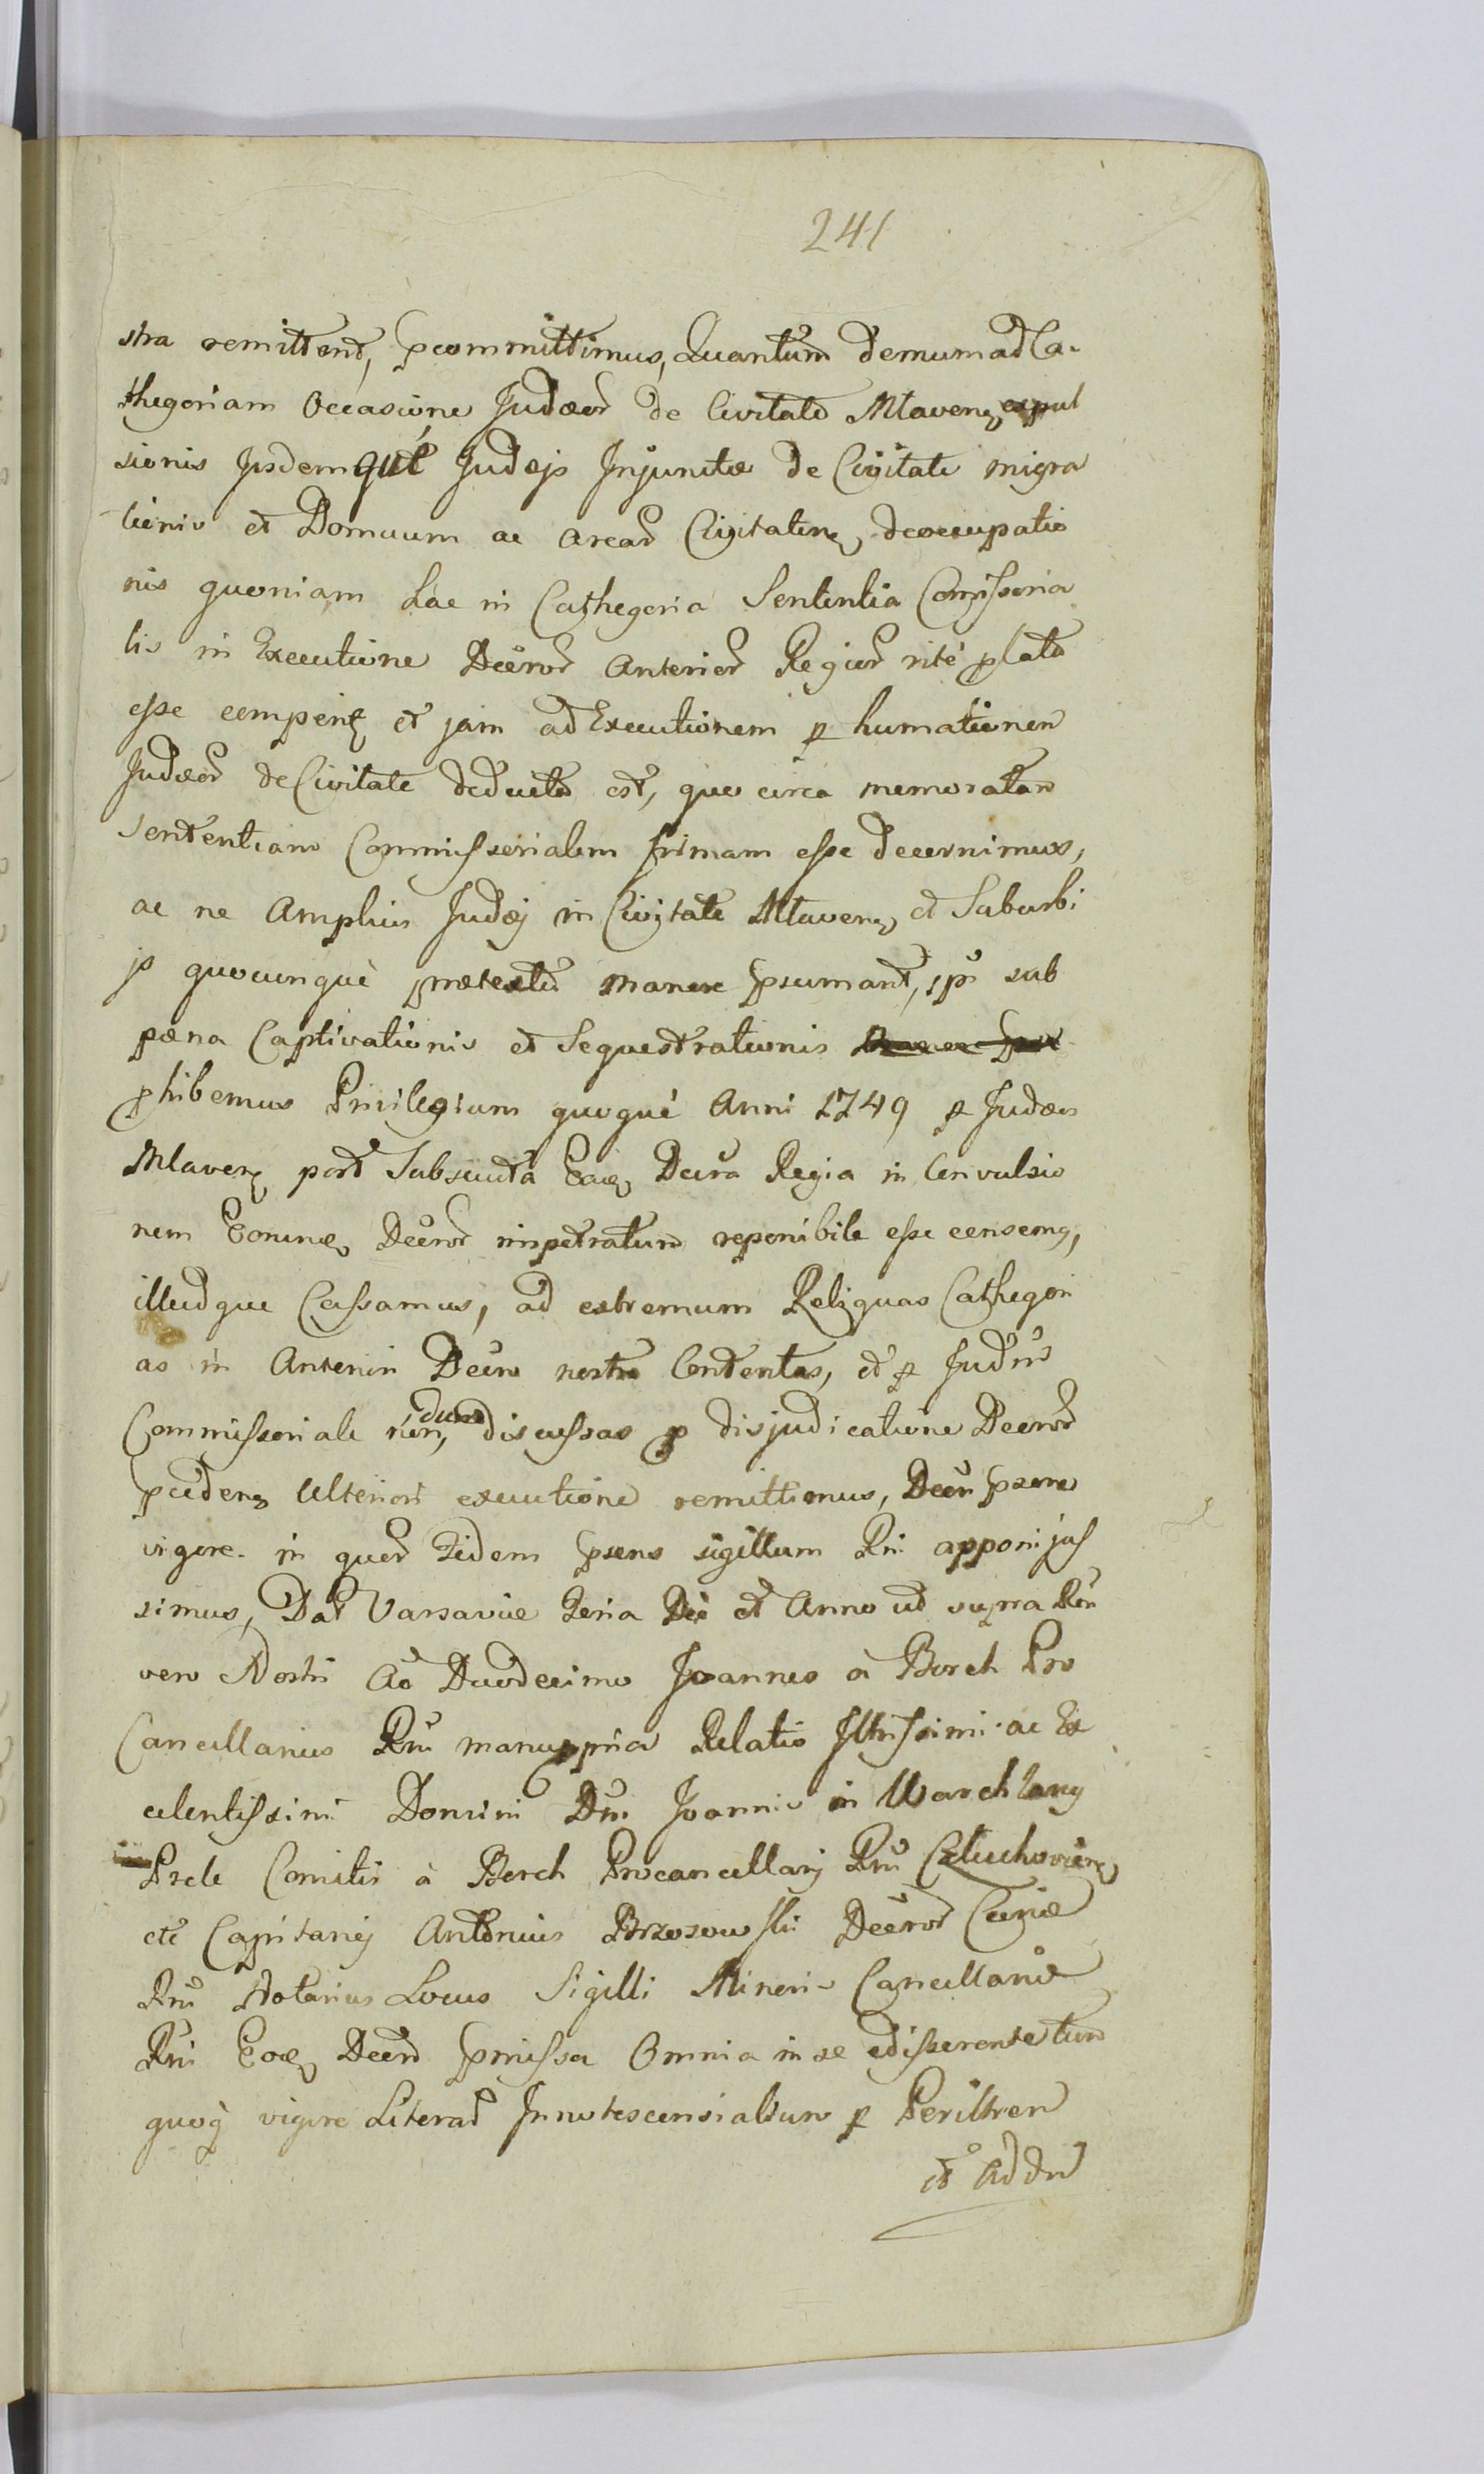 241
stra remittend, pcommittimus, Quantum demum ad Ca-
thegoriam Occasione Judæor de Civitate Mlavens expul
sionis Jisdemqué Judæjs Injunctæ de Civitate migra
tionis et Domuum ac Arear Civitatens deoccupatio
nis quoniam hac in Cathegoria Sententia Comissoria
lis in Executione Decror Anterior Regior rité plata
esse comperit et jam ad Executionem p humationem
Judæor de Civitate deducta est, quo circa memoratam
Sententiam Commissorialem firmam esse decernimus,
ac ne Amplius Judæj in Civitate Mlavens et Suburbi
js quocunquè prætextu manere psumant, sub
pæna Captivationis et Sequestrationis
phibemus Privilegium quoquè Anni 1749 p Judæos
Mlavens post Subsecuta Decra Regia in Convulsio
nem Decror impetratum reponibile esse censemg,
illudque Cassamus, ad extremum Reliquas Cathegori
as in Anteriori Decro nostro Contentas, et p Judm
Commissoriale non dum discussas p disjudicatione Decror
pcedens Ulteriori executione remittimus, Decri psens
vigore. in quor fidem psens sigillum Rni apponi jus
simus, Dat Varsaviæ Feria Die et Anno ut supra Rni
vero Nostri Ao Duodecimo Joannes à Borch Pro
Cancellarius Rni manuppria Relatio Illrissimi ac Ex
celentissimi Domini Dni Joannis in Warchlany
Prele Comitis à Borch Procancellarij Rni Człuchoviens
etc Capitanej Antonius Brzozowski Decror Curiæ
Rni Notarius Locus Sigilli Minoris Cancellariæ
Rni Decrm pmissa Omnia in se edisserente tum
quoq vigore Literar Innotescensialium p Perillrem
et Addm